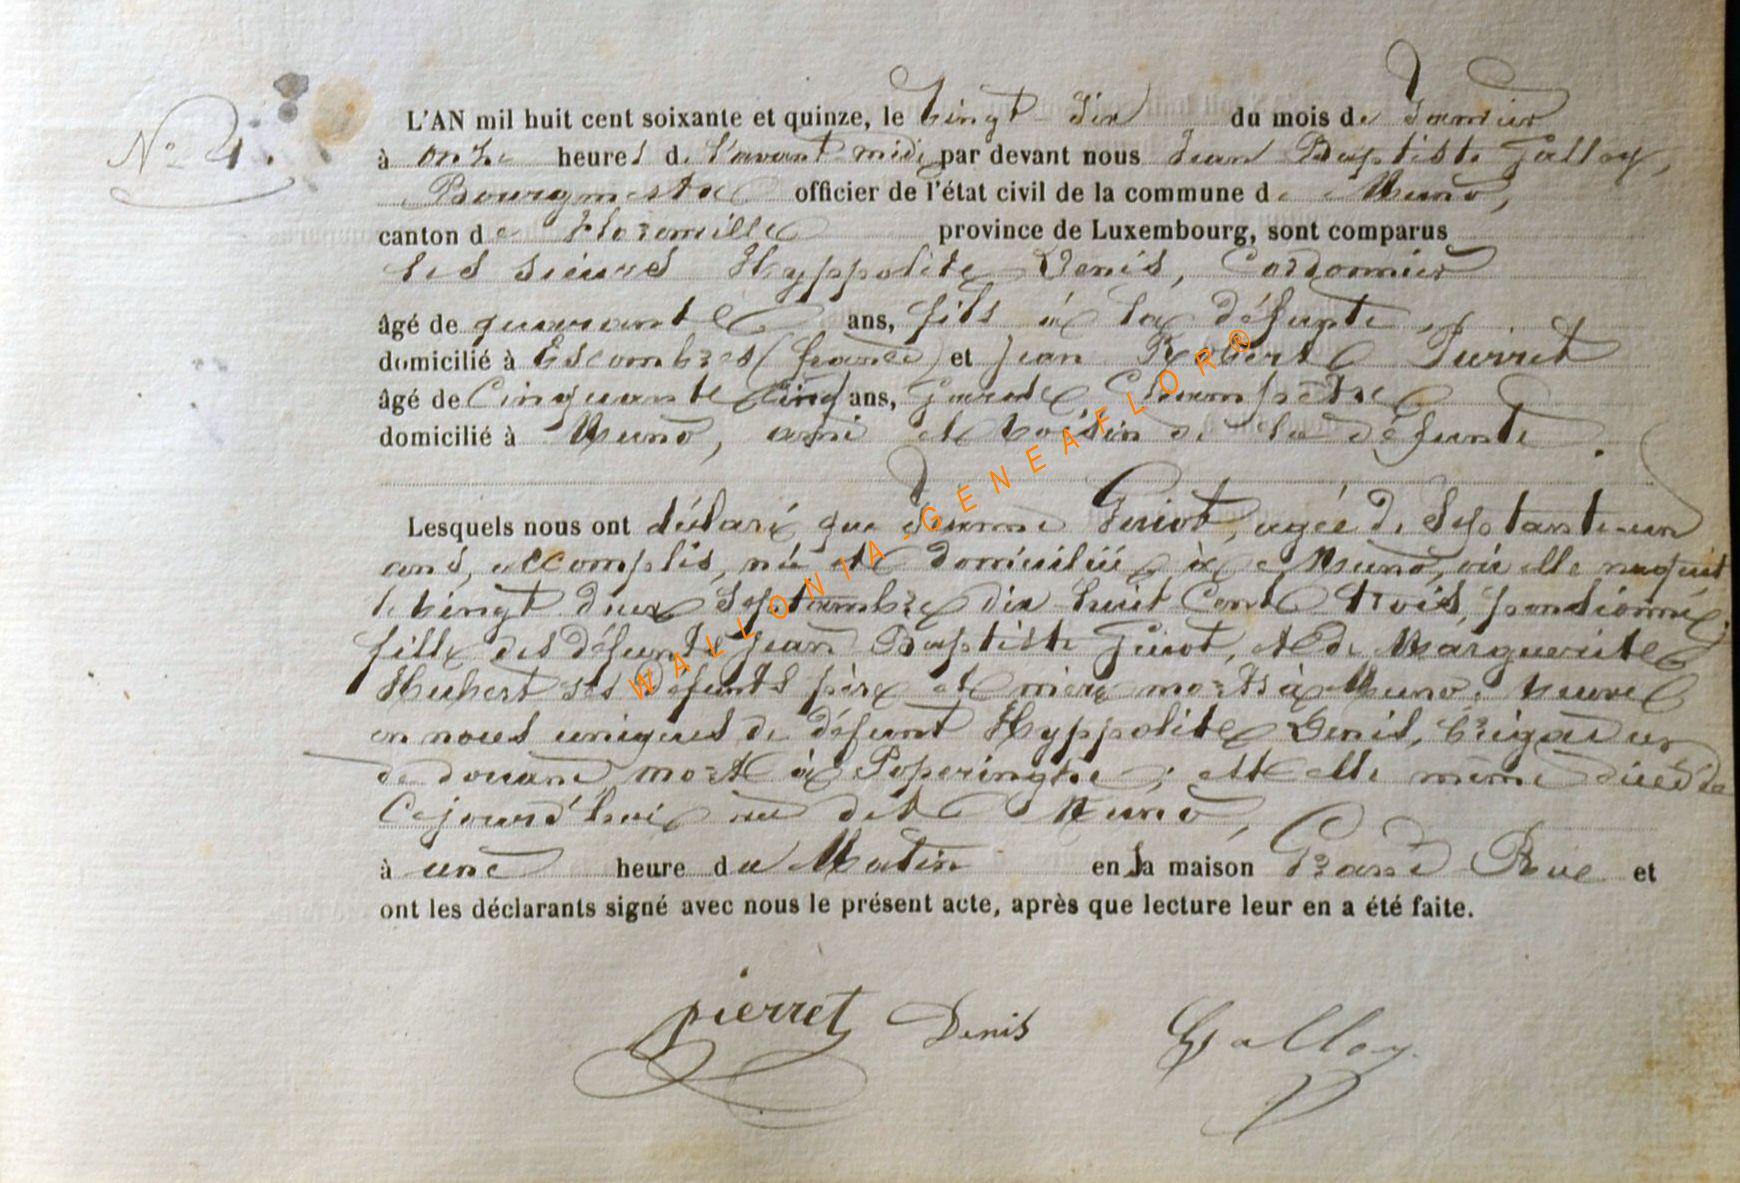 N° 4.
L'AN mil huit cent soixante et quinze, le Vingt Six du mois de Janvier
à onze heures de l'avant-midi, par devant nous Jean Baptiste Galloy,
Bourgmestre officier de l'état civil de la commune de Muno,
canton de Florenville province de Luxembourg, sont comparus
les sieurs Hyppolite Denis, Cordonnier
âgé de quarante ans, fils à la défunte,
domicilié à Escombres (france) et Jean Robert Pierret
âgé de Cinquante Cinq ans, Garde Champêtre
domicilié à Muno, ami et Voisin de la défunte.
Lesquels nous ont déclaré que Jeanne Guiot, agée de Septante-un
ans, accomplis, née et domiciliée à Muno, où elle naquit
le Vingt deux Septembre dix-huit Cent trois, pensionnée,
fille des défunts Jean Baptiste Guiot, et de Marguerite
Hubert ses défunts père et mère morts à Muno, Veuve
en noces uniques de défunt Hyppolite Denis, brigadier
de douane, mort à Poperinghe; est elle même décédée
Cejourd'hui au dit Muno,
à une heure du Matin en sa maison Grand Rue et
ont les déclarants signé avec nous le présent acte, après que lecture leur en a été faite.
pierret Denis Galloy
WALLONIA-GENEAFLOR®